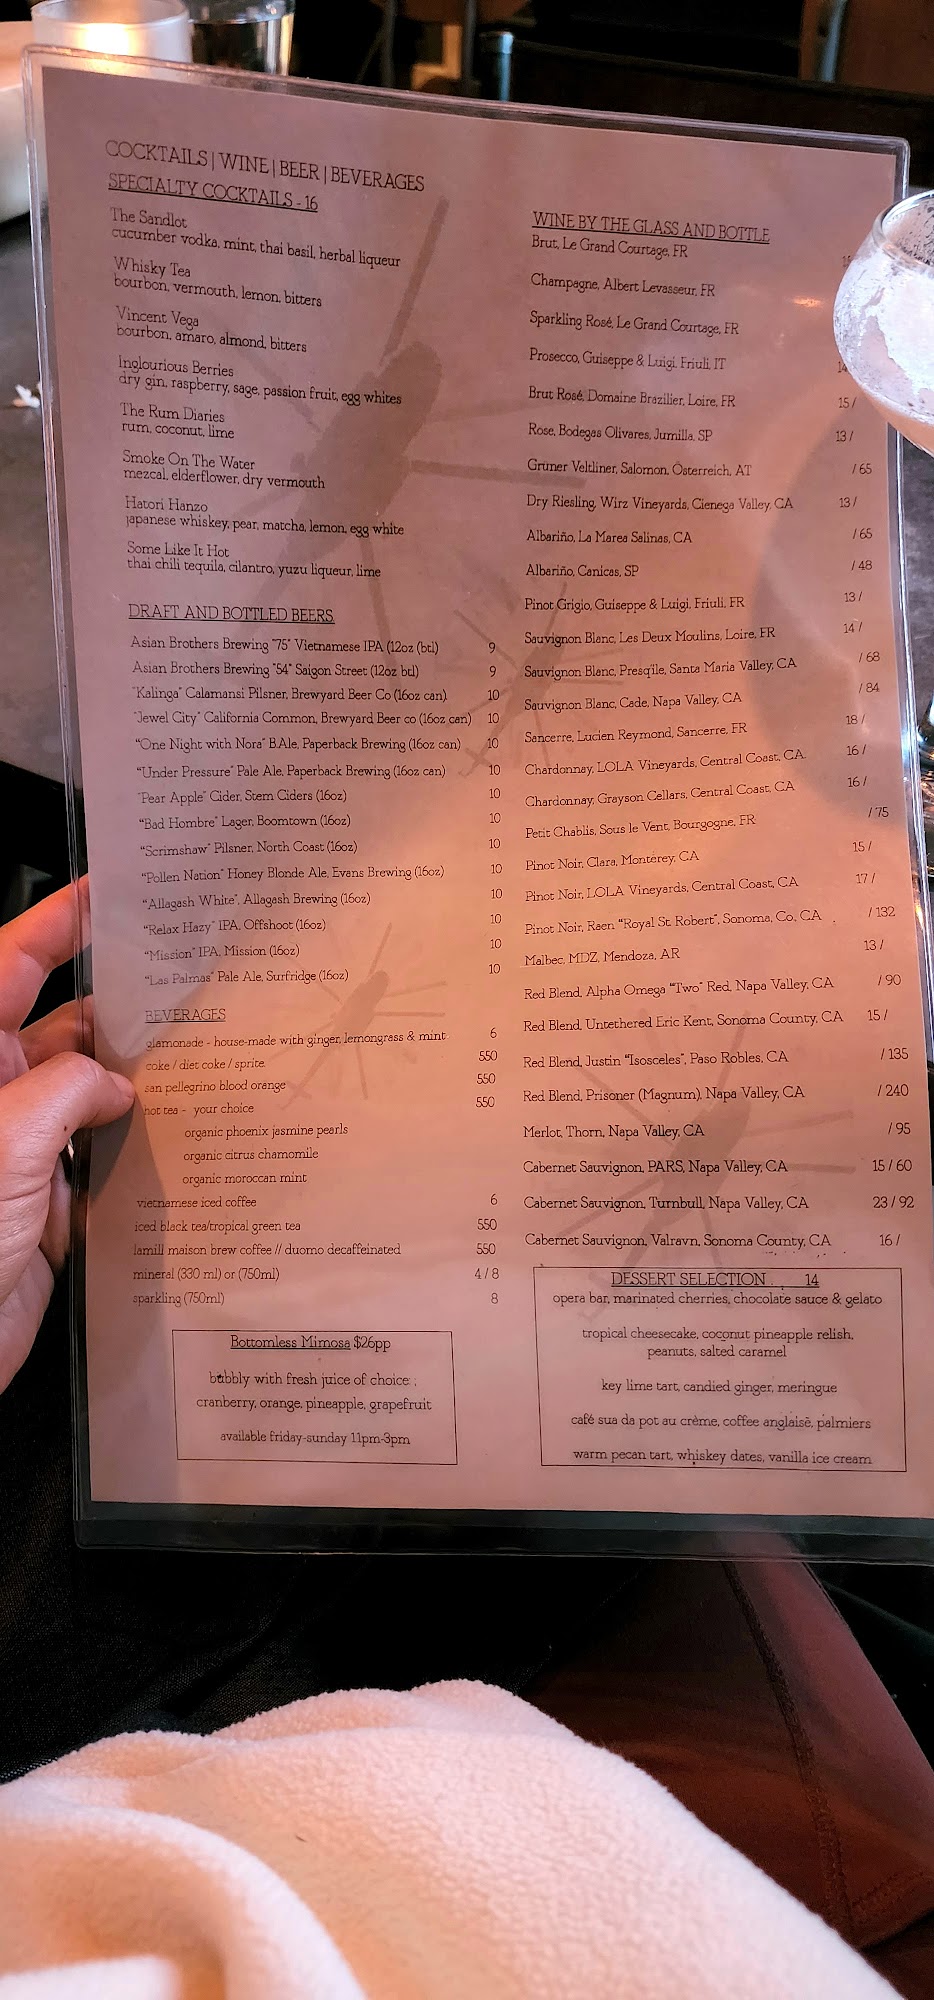 COCKTAILS | WINE | BEER | BEVERAGES
SPECIALTY COCKTAILS - 16
The Sandlot
cucumber vodka, mint, thai basil, herbal liqueur
Whisky Tea
bourbon, vermouth, lemon, bitters
Vincent Vega
bourbon, amaro, almond, bitters
Inglourious Berries
dry gin, raspberry, sage, passion fruit, egg whites
The Rum Diaries
rum, coconut, lime
Smoke On The Water
mezcal, elderflower, dry vermouth
Hatori Hanzo
japanese whiskey, pear, matcha, lemon, egg white
Some Like It Hot
thai chili tequila, cilantro, yuzu liqueur, lime
DRAFT AND BOTTLED BEERS
Asian Brothers Brewing "75" Vietnamese IPA (12oz (btl) 9
Asian Brothers Brewing "54" Saigon Street (12oz btl) 9
"Kalinga" Calamansi Pilsner, Brewyard Beer Co (16oz can) 10
"Jewel City" California Common, Brewyard Beer co (16oz can) 10
"One Night with Nora" B.Ale, Paperback Brewing (16oz can) 10
"Under Pressure" Pale Ale, Paperback Brewing (16oz can) 10
"Pear Apple" Cider, Stem Ciders (16oz) 10
"Bad Hombre" Lager, Boomtown (16oz) 10
"Scrimshaw" Pilsner, North Coast (16oz) 10
"Pollen Nation" Honey Blonde Ale, Evans Brewing (16oz) 10
"Allagash White", Allagash Brewing (16oz) 10
"Relax Hazy" IPA, Offshoot (16oz) 10
"Mission" IPA, Mission (16oz) 10
"Las Palmas" Pale Ale, Surfridge (16oz) 10
BEVERAGES
glamonade - house-made with ginger, lemongrass & mint 6
coke / diet coke / sprite 550
san pellegrino blood orange 550
hot tea - your choice 550
organic phoenix jasmine pearls
organic citrus chamomile
organic moroccan mint
vietnamese iced coffee 6
iced black tea/tropical green tea 550
lamill maison brew coffee // duomo decaffeinated 550
mineral (330 ml) or (750ml) 4 / 8
sparkling (750ml) 8
Bottomless Mimosa $26pp
bubbly with fresh juice of choice ;
cranberry, orange, pineapple, grapefruit
available friday-sunday 11pm-3pm
WINE BY THE GLASS AND BOTTLE
Brut, Le Grand Courtage, FR
Champagne, Albert Levasseur, FR
Sparkling Rosé, Le Grand Courtage, FR
Prosecco, Guiseppe & Luigi, Friuli, IT 14
Brut Rosé, Domaine Brazilier, Loire, FR 15 /
Rose, Bodegas Olivares, Jumilla, SP 13 /
Grüner Veltliner, Salomon, Österreich, AT / 65
Dry Riesling, Wirz Vineyards, Cienega Valley, CA 13 /
Albariño, La Marea Salinas, CA / 65
Albariño, Canicas, SP / 48
Pinot Grigio, Guiseppe & Luigi, Friuli, FR 13 /
Sauvignon Blanc, Les Deux Moulins, Loire, FR 14 /
Sauvignon Blanc, Presq'ile, Santa Maria Valley, CA / 68
Sauvignon Blanc, Cade, Napa Valley, CA / 84
Sancerre, Lucien Reymond, Sancerre, FR 18 /
Chardonnay, LOLA Vineyards, Central Coast, CA 16 /
Chardonnay, Grayson Cellars, Central Coast, CA 16 /
Petit Chablis, Sous le Vent, Bourgogne, FR / 75
Pinot Noir, Clara, Monterey, CA 15 /
Pinot Noir, LOLA Vineyards, Central Coast, CA 17 /
Pinot Noir, Raen "Royal St. Robert", Sonoma, Co, CA / 132
Malbec, MDZ, Mendoza, AR 13 /
Red Blend, Alpha Omega "Two" Red, Napa Valley, CA / 90
Red Blend, Untethered Eric Kent, Sonoma County, CA 15 /
Red Blend, Justin "Isosceles", Paso Robles, CA / 135
Red Blend, Prisoner (Magnum), Napa Valley, CA / 240
Merlot, Thorn, Napa Valley, CA / 95
Cabernet Sauvignon, PARS, Napa Valley, CA 15 / 60
Cabernet Sauvignon, Turnbull, Napa Valley, CA 23 / 92
Cabernet Sauvignon, Valravn, Sonoma County, CA 16 /
DESSERT SELECTION 14
opera bar, marinated cherries, chocolate sauce & gelato
tropical cheesecake, coconut pineapple relish,
peanuts, salted caramel
key lime tart, candied ginger, meringue
café sua da pot au crème, coffee anglaisè, palmiers
warm pecan tart, whiskey dates, vanilla ice cream